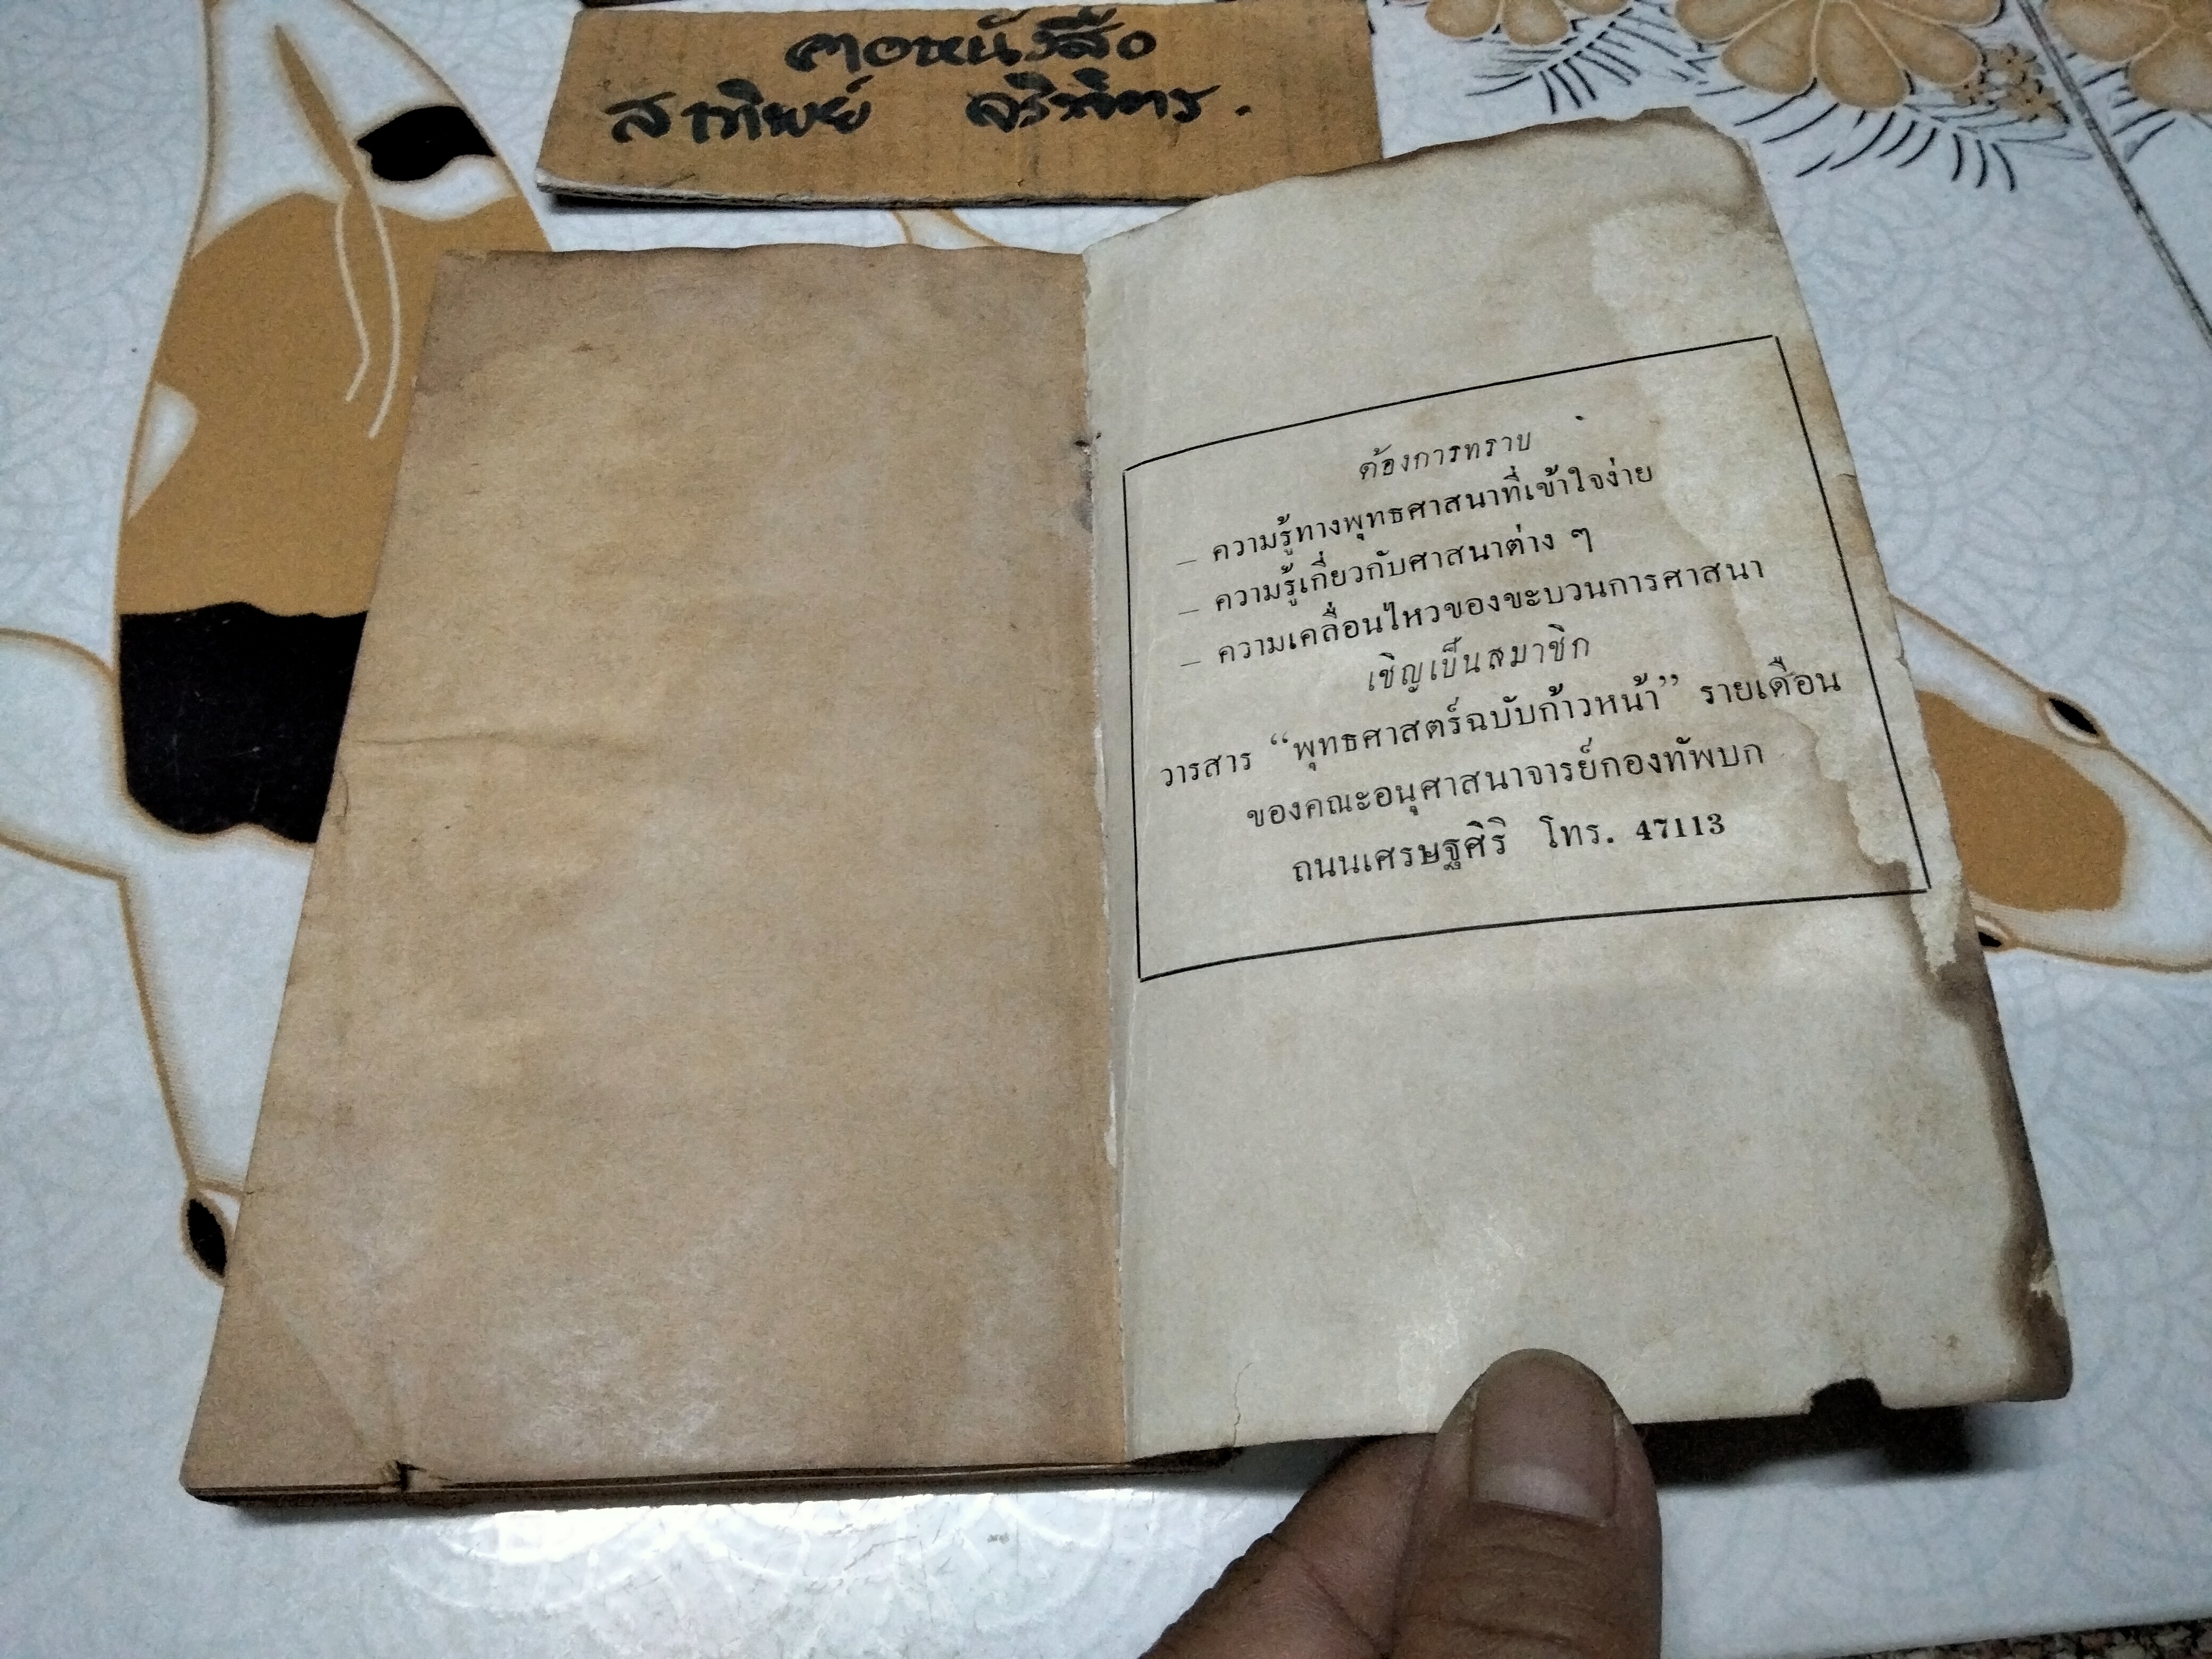 คอหนังสือ
สาทิพย์
ต้องการทราบ
— ความรู้ทางพุทธศาสนาที่เข้าใจง่าย
— ความรู้เกี่ยวกับศาสนาต่าง ๆ
— ความเคลื่อนไหวของขะบวนการศาสนา
เชิญเป็นสมาชิก
วารสาร “พุทธศาสตร์ฉบับก้าวหน้า” รายเดือน
ของคณะอนุศาสนาจารย์กองทัพบก
ถนนเศรษฐศิริ โทร. 47113